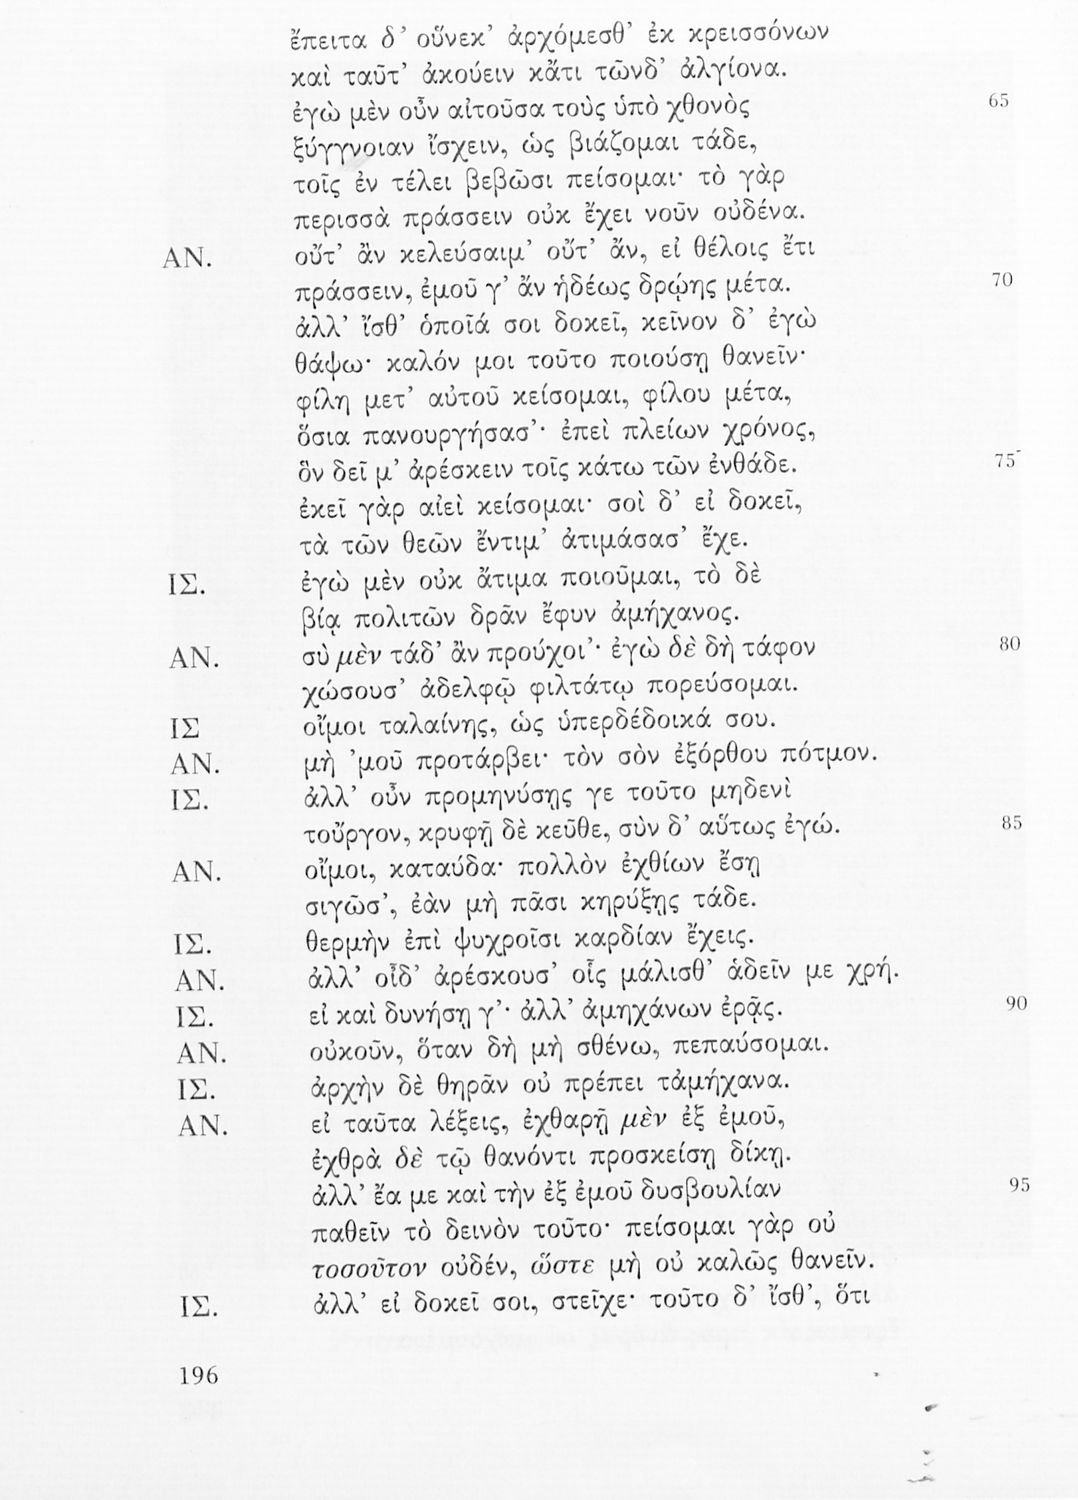 ἔπειτα δ’ οὕνεκ’ ἀρχόμεσθ’ ἐκ κρεισσόνων
καὶ ταῦτ’ ἀκούειν κἄτι τῶνδ’ ἀλγίονα.
ἐγὼ μὲν οὖν αἰτοῦσα τοὺς ὑπὸ χθονὸς 65
ξύγγνοιαν ἴσχειν, ὡς βιάζομαι τάδε,
τοῖς ἐν τέλει βεβῶσι πείσομαι· τὸ γὰρ
περισσὰ πράσσειν οὐκ ἔχει νοῦν οὐδένα.
ΑΝ. οὔτ’ ἂν κελεύσαιμ’ οὔτ’ ἄν, εἰ θέλοις ἔτι
πράσσειν, ἐμοῦ γ’ ἂν ἡδέως δρῴης μέτα. 70
ἀλλ’ ἴσθ’ ὁποῖά σοι δοκεῖ, κεῖνον δ’ ἐγὼ
θάψω· καλόν μοι τοῦτο ποιούσῃ θανεῖν·
φίλη μετ’ αὐτοῦ κείσομαι, φίλου μέτα,
ὅσια πανουργήσασ’· ἐπεὶ πλείων χρόνος,
ὃν δεῖ μ’ ἀρέσκειν τοῖς κάτω τῶν ἐνθάδε. 75
ἐκεῖ γὰρ αἰεὶ κείσομαι· σοὶ δ’ εἰ δοκεῖ,
τὰ τῶν θεῶν ἔντιμ’ ἀτιμάσασ’ ἔχε.
ΙΣ. ἐγὼ μὲν οὐκ ἄτιμα ποιοῦμαι, τὸ δὲ
βίᾳ πολιτῶν δρᾶν ἔφυν ἀμήχανος.
ΑΝ. σὺ μὲν τάδ’ ἂν προύχοι’· ἐγὼ δὲ δὴ τάφον 80
χώσουσ’ ἀδελφῷ φιλτάτῳ πορεύσομαι.
ΙΣ οἴμοι ταλαίνης, ὡς ὑπερδέδοικά σου.
ΑΝ. μὴ ’μοῦ προτάρβει· τὸν σὸν ἐξόρθου πότμον.
ΙΣ. ἀλλ’ οὖν προμηνύσῃς γε τοῦτο μηδενὶ
τοὔργον, κρυφῇ δὲ κεῦθε, σὺν δ’ αὕτως ἐγώ. 85
ΑΝ. οἴμοι, καταύδα· πολλὸν ἐχθίων ἔσῃ
σιγῶσ’, ἐὰν μὴ πᾶσι κηρύξῃς τάδε.
ΙΣ. θερμὴν ἐπὶ ψυχροῖσι καρδίαν ἔχεις.
ΑΝ. ἀλλ’ οἶδ’ ἀρέσκουσ’ οἷς μάλισθ’ ἁδεῖν με χρή.
ΙΣ. εἰ καὶ δυνήσῃ γ’· ἀλλ’ ἀμηχάνων ἐρᾷς. 90
ΑΝ. οὐκοῦν, ὅταν δὴ μὴ σθένω, πεπαύσομαι.
ΙΣ. ἀρχὴν δὲ θηρᾶν οὐ πρέπει τἀμήχανα.
ΑΝ. εἰ ταῦτα λέξεις, ἐχθαρῇ μὲν ἐξ ἐμοῦ,
ἐχθρὰ δὲ τῷ θανόντι προσκείσῃ δίκῃ.
ἀλλ’ ἔα με καὶ τὴν ἐξ ἐμοῦ δυσβουλίαν 95
παθεῖν τὸ δεινὸν τοῦτο· πείσομαι γὰρ οὐ
τοσοῦτον οὐδέν, ὥστε μὴ οὐ καλῶς θανεῖν.
ΙΣ. ἀλλ’ εἰ δοκεῖ σοι, στεῖχε· τοῦτο δ’ ἴσθ’, ὅτι
196